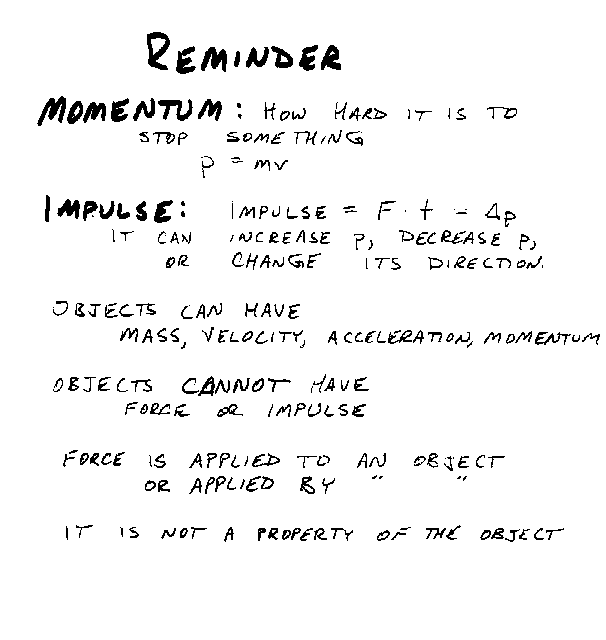 REMINDER
MOMENTUM: HOW HARD IT IS TO
STOP SOMETHING
p = mv
IMPULSE: IMPULSE = F · t = Δp
IT CAN INCREASE P, DECREASE P,
OR CHANGE ITS DIRECTION.
OBJECTS CAN HAVE
MASS, VELOCITY, ACCELERATION, MOMENTUM
OBJECTS CANNOT HAVE
FORCE OR IMPULSE
FORCE IS APPLIED TO AN OBJECT
OR APPLIED BY " "
IT IS NOT A PROPERTY OF THE OBJECT